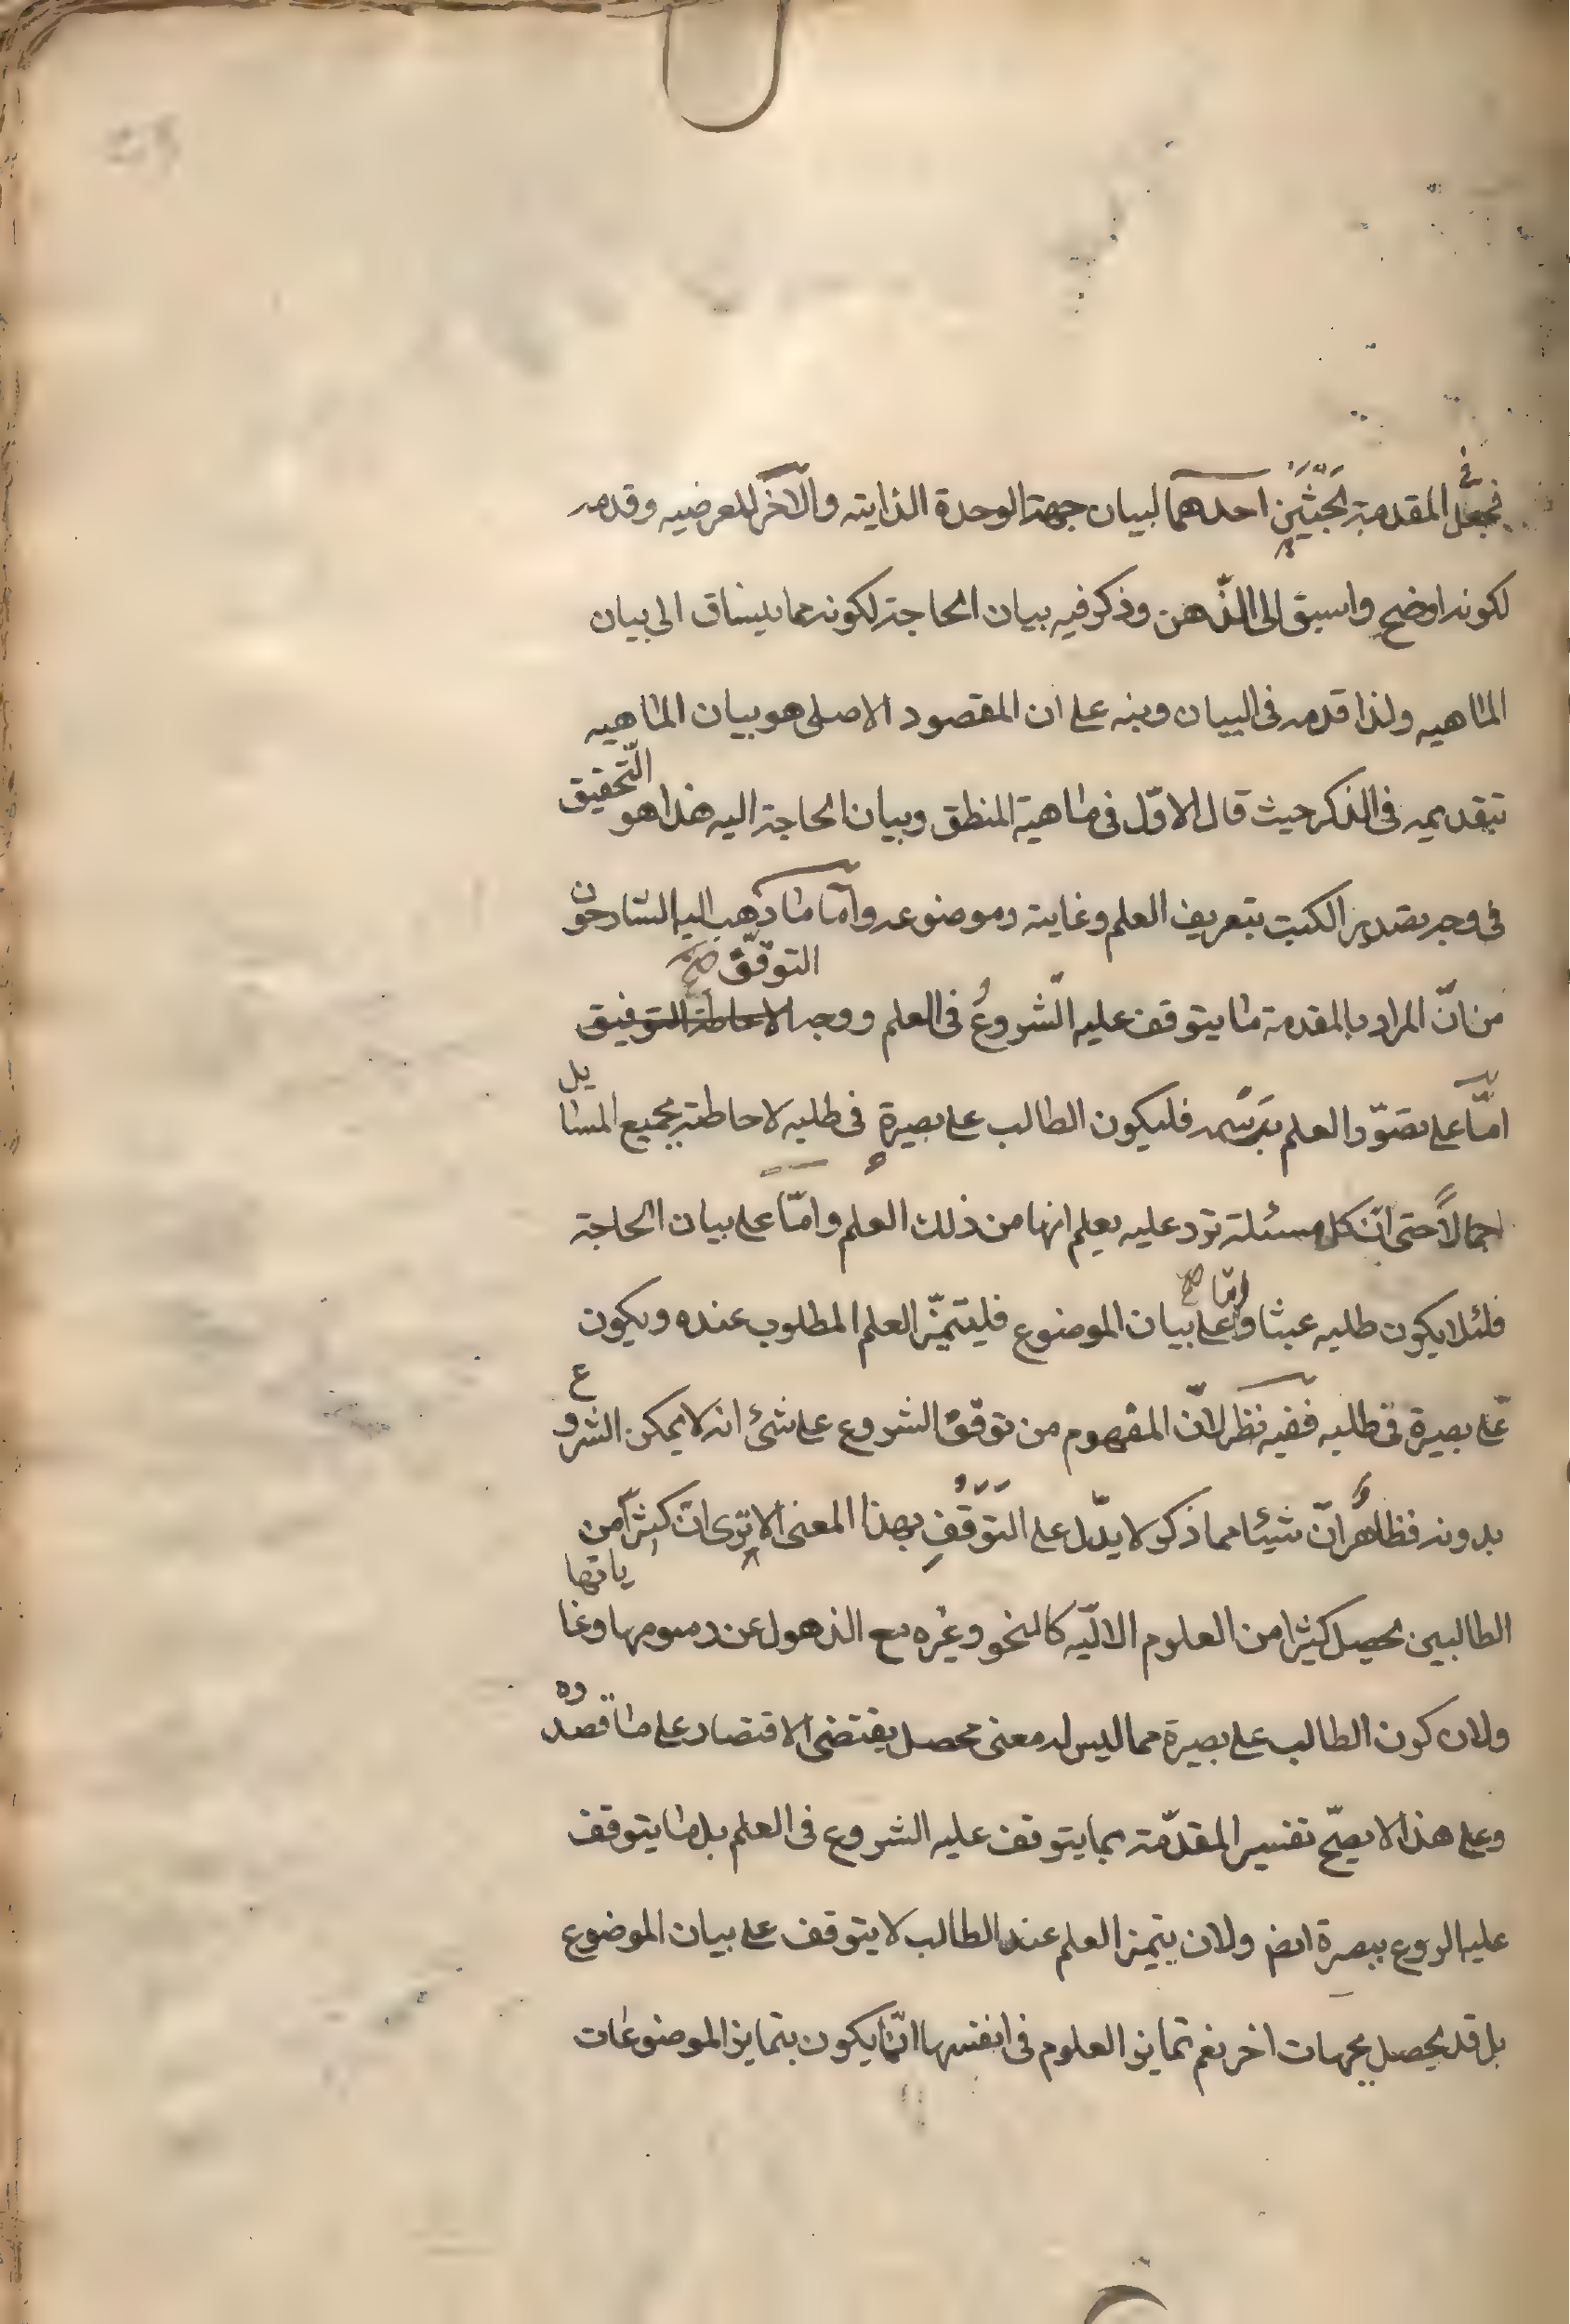 فجعل في المقدمة بحثين احدهما لبيان جهة الوحدة الذاتيه والآخر للعرضيه وقدمه
لكونه اوضح واسبق الى الذّهن وذكر فيه بيان الحاجة لكونه مما ينساق الى بيان
الماهيه ولذا قدمه فى البيان ونبه على ان المقصود الاصلى هو بيان الماهيه
بتقديمه فى الذكر حيث قال الاوّل فى ماهية المنطق وبيان الحاجة اليه هذا هو التّحقيق
فى وجه تصدير الكتب بتعريف العلم وغايته وموضوعه وأمّا ما ذهب اليه الشارحون
من انّ المراد بالمقدمة ما يتوقف عليه الشّروعُ فى العلم ووجه الاحاطة التوفيق التوقّف صح
امّا على تصوّر العلم برسمه فليكون الطالب على بصيرةٍ فى طلبه لاحاطته بجميع المسايل
اجمالاً حتى انّ كل مسئلة ترد عليه يعلم انها من ذلك العلم وامّا على بيان الحاجة
فلئلا يكون طلبه عبثا وامّا صح على بيان الموضوع فليتميّز العلم المطلوب عنده ويكون
على بصيرة فى طلبه ففيه نظر لانّ المفهوم من توقّف الشروع على شئ انه لا يمكن الشروع
بدونه فظاهرٌ انّ شيئا مما ذكر لا يدّل على التَّوَقُّفِ بهذا المعنى الا ترى ان كثيراً من
الطالبين يحصل كثيرا من العلوم الآليّه كالنحو وغيره مع الذهول عن رسومها وغاياتها
ولان كون الطالب على بصيرة مما ليس له معنى محصل يقتضى الاقتصار على ما قصدوه
وعلى هذا لا يصحّ تفسير المقدّمة بما يتوقف عليه الشروع فى العلم بل ما يتوقف
عليه الروع ببصرة ايض ولان يتميز العلم عند الطالب لا يتوقف على بيان الموضوع
بل قد يحصل بجهات اخر نعم تمايز العلوم فى انفسها انّما يكون بتمايز الموضوعات